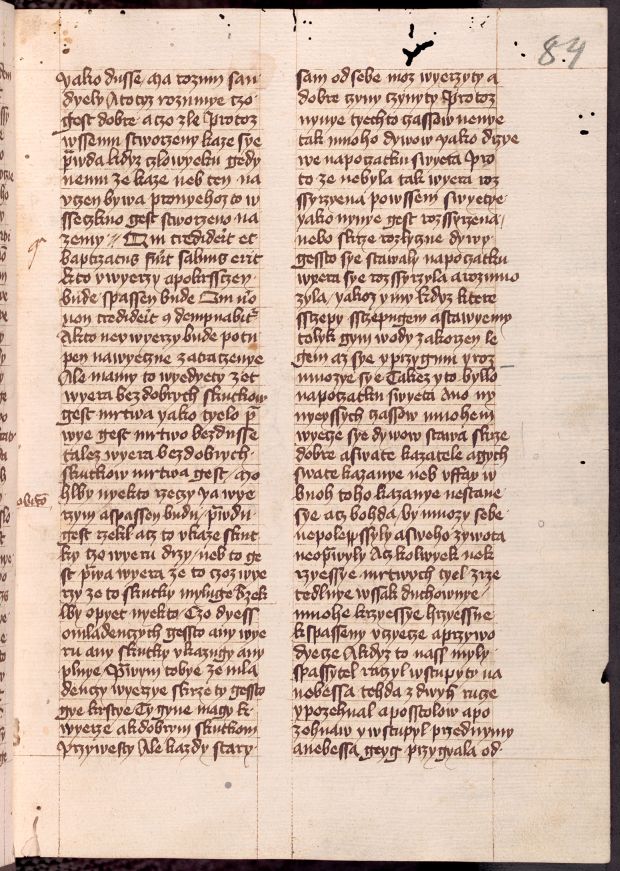 84
yako dusse Ma rozum san
dyely A totyz rozumye czo
gest dobre a czo zle Protoz
wssemu stworzeny kaze sye
pᷓwda kdyz czlowyeku gedy
nemu ze kaze neb ten na
vczen bywa pronyehozto w
sseczkno gest stworzeno na
zemy Qui crediderit et
baptizatus fuerit saluus erit
Kto vwyerzy a pokrsstzen
bude spassen bude Qui vero
non crediderit condempnabitur
A kto newyerzy bude potu
pen nawyeczne zatraczenye
Ale mamy to wyedyety zet
wyera bez dobrych skutkow
gest mrtwa yako tyelo pra
wye gest mrtwo bez dusse
takez wyera bez dobrych
skutkow mrtwa gest A
kdyby nyekto rzeczy ya wye
rzym a spassen budu
gest rzekl acz to vkaze skut
ky czo wyeru drzy neb to ge
st pᷓwa wyera ze to czoz wye
rzy ze to skutky myluge Rzek
lby opyet nyekto Czo dyess
o mladenczych gessto any wye
ru any skutky vkazugy any
plnye Prawym tobye ze mla
denczy wyerzye skrze ty gessto
gye krstye Ty gyne magy k
wyerze a k dobrym skutkom
przywesty Ale kazdy stary
sam od sebe moz wyerzyty a
dobre czyny czynyty Protoz
nynye tyechto czassow nenye
tak mnoho dywow yako drzye
we na poczatku swyeta Pro
to ze nebyla tak wyera roz
ssyrzena po wssem swyetye
yako nynye gest rozssyrzena
nebo skrze rozlyczne dywy
gessto sye stawaly na poczatku
wyera sye rozssyrzyla a rozmno
zyla yakoz y my kdyz ktere
sstzepy sstzepugem a stawyemy
tolyk gym wody zakorzen le
gem az sye vprzygmu y roz
mnozye sye Takez y to bylo
na poczatku swyeta Ano ny
nyeyssych czassow mnohem
wyecze sye dywow stawa skrze
dobre a swate kazatele a gych
swate kazanye neb vffay w
buoh toho kazanye nestane
sye acz bohda by mnozy sebe
nepolepssyly a sweho zywota
neoprawyly Acz kolwyek nek
rzyessye mrtwych tyel zrze
tedlnye wssak duchownye
mnohe krzyessye hrzyessne
k spasseny vczyecze a przywo
dyecze A kdyz to nass myly
spassytel raczyl wstupyty na
nebessa tehda zdwyh rucze
y pozehnal aposstolow a po
zehnaw y wstupyl przed nymy
a nebessa geyg przygyala od